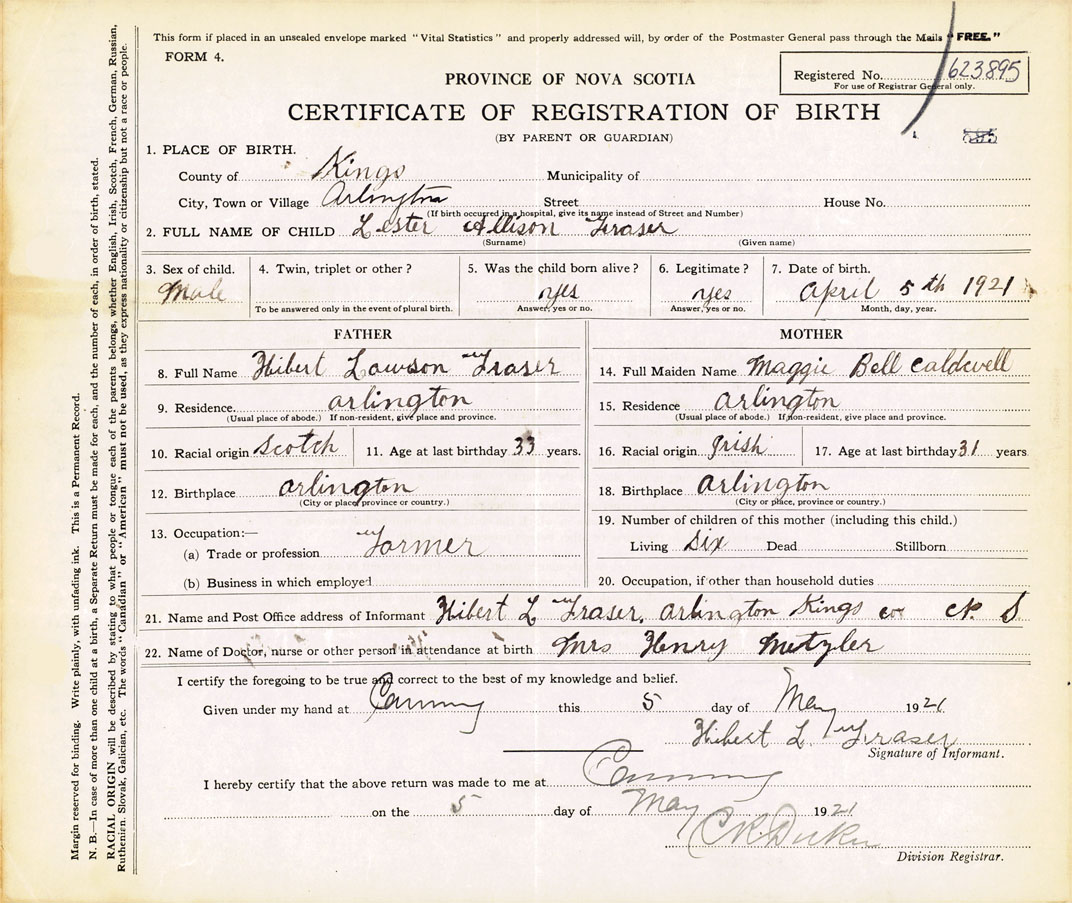 This form if placed in an unsealed envelope marked "Vital Statistics" and properly addressed will, by order of the Postmaster General pass through the Mails "FREE."
FORM 4.
Registered No. 623895
For use of Registrar General only.
PROVINCE OF NOVA SCOTIA
CERTIFICATE OF REGISTRATION OF BIRTH
(BY PARENT OR GUARDIAN)
1. PLACE OF BIRTH.
County of Kings Municipality of
City, Town or Village Arlington Street House No.
(If birth occurred in a hospital, give its name instead of Street and Number)
2. FULL NAME OF CHILD Lester Allison Fraser
(Surname) (Given name)
3. Sex of child. 4. Twin, triplet or other? 5. Was the child born alive? 6. Legitimate? 7. Date of birth.
Male yes yes April 5th 1921
To be answered only in the event of plural birth. Answer, yes or no. Answer, yes or no. Month, day, year.
FATHER
8. Full Name Hibert Lawson Fraser
9. Residence. arlington
(Usual place of abode.) If non-resident, give place and province.
10. Racial origin Scotch 11. Age at last birthday 33 years.
12. Birthplace arlington
(City or place, province or country.)
13. Occupation:—
(a) Trade or profession Farmer
(b) Business in which employed
MOTHER
14. Full Maiden Name Maggie Bell Caldwell
15. Residence arlington
(Usual place of abode.) If non-resident, give place and province.
16. Racial origin Irish 17. Age at last birthday 31 years
18. Birthplace arlington
(City or place, province or country.)
19. Number of children of this mother (including this child.)
Living Six Dead Stillborn
20. Occupation, if other than household duties
21. Name and Post Office address of Informant Hibert L Fraser, arlington Kings co N. S
22. Name of Doctor, nurse or other person in attendance at birth Mrs Henry Metzler
I certify the foregoing to be true and correct to the best of my knowledge and belief.
Given under my hand at Canning this 5 day of May 1921
Hibert L Fraser
Signature of Informant.
I hereby certify that the above return was made to me at Canning
on the 5 day of May 1921
Division Registrar.
Margin reserved for binding. Write plainly, with unfading ink. This is a Permanent Record.
N. B.—In case of more than one child at a birth, a Separate Return must be made for each, and the number of each, in order of birth, stated.
RACIAL ORIGIN will be described by stating to what people or tongue each of the parents belongs, whether English, Irish, Scotch, French, German, Russian,
Ruthenian, Slovak, Galician, etc. The words "Canadian" or "American" must not be used, as they express nationality or citizenship but not a race or people.